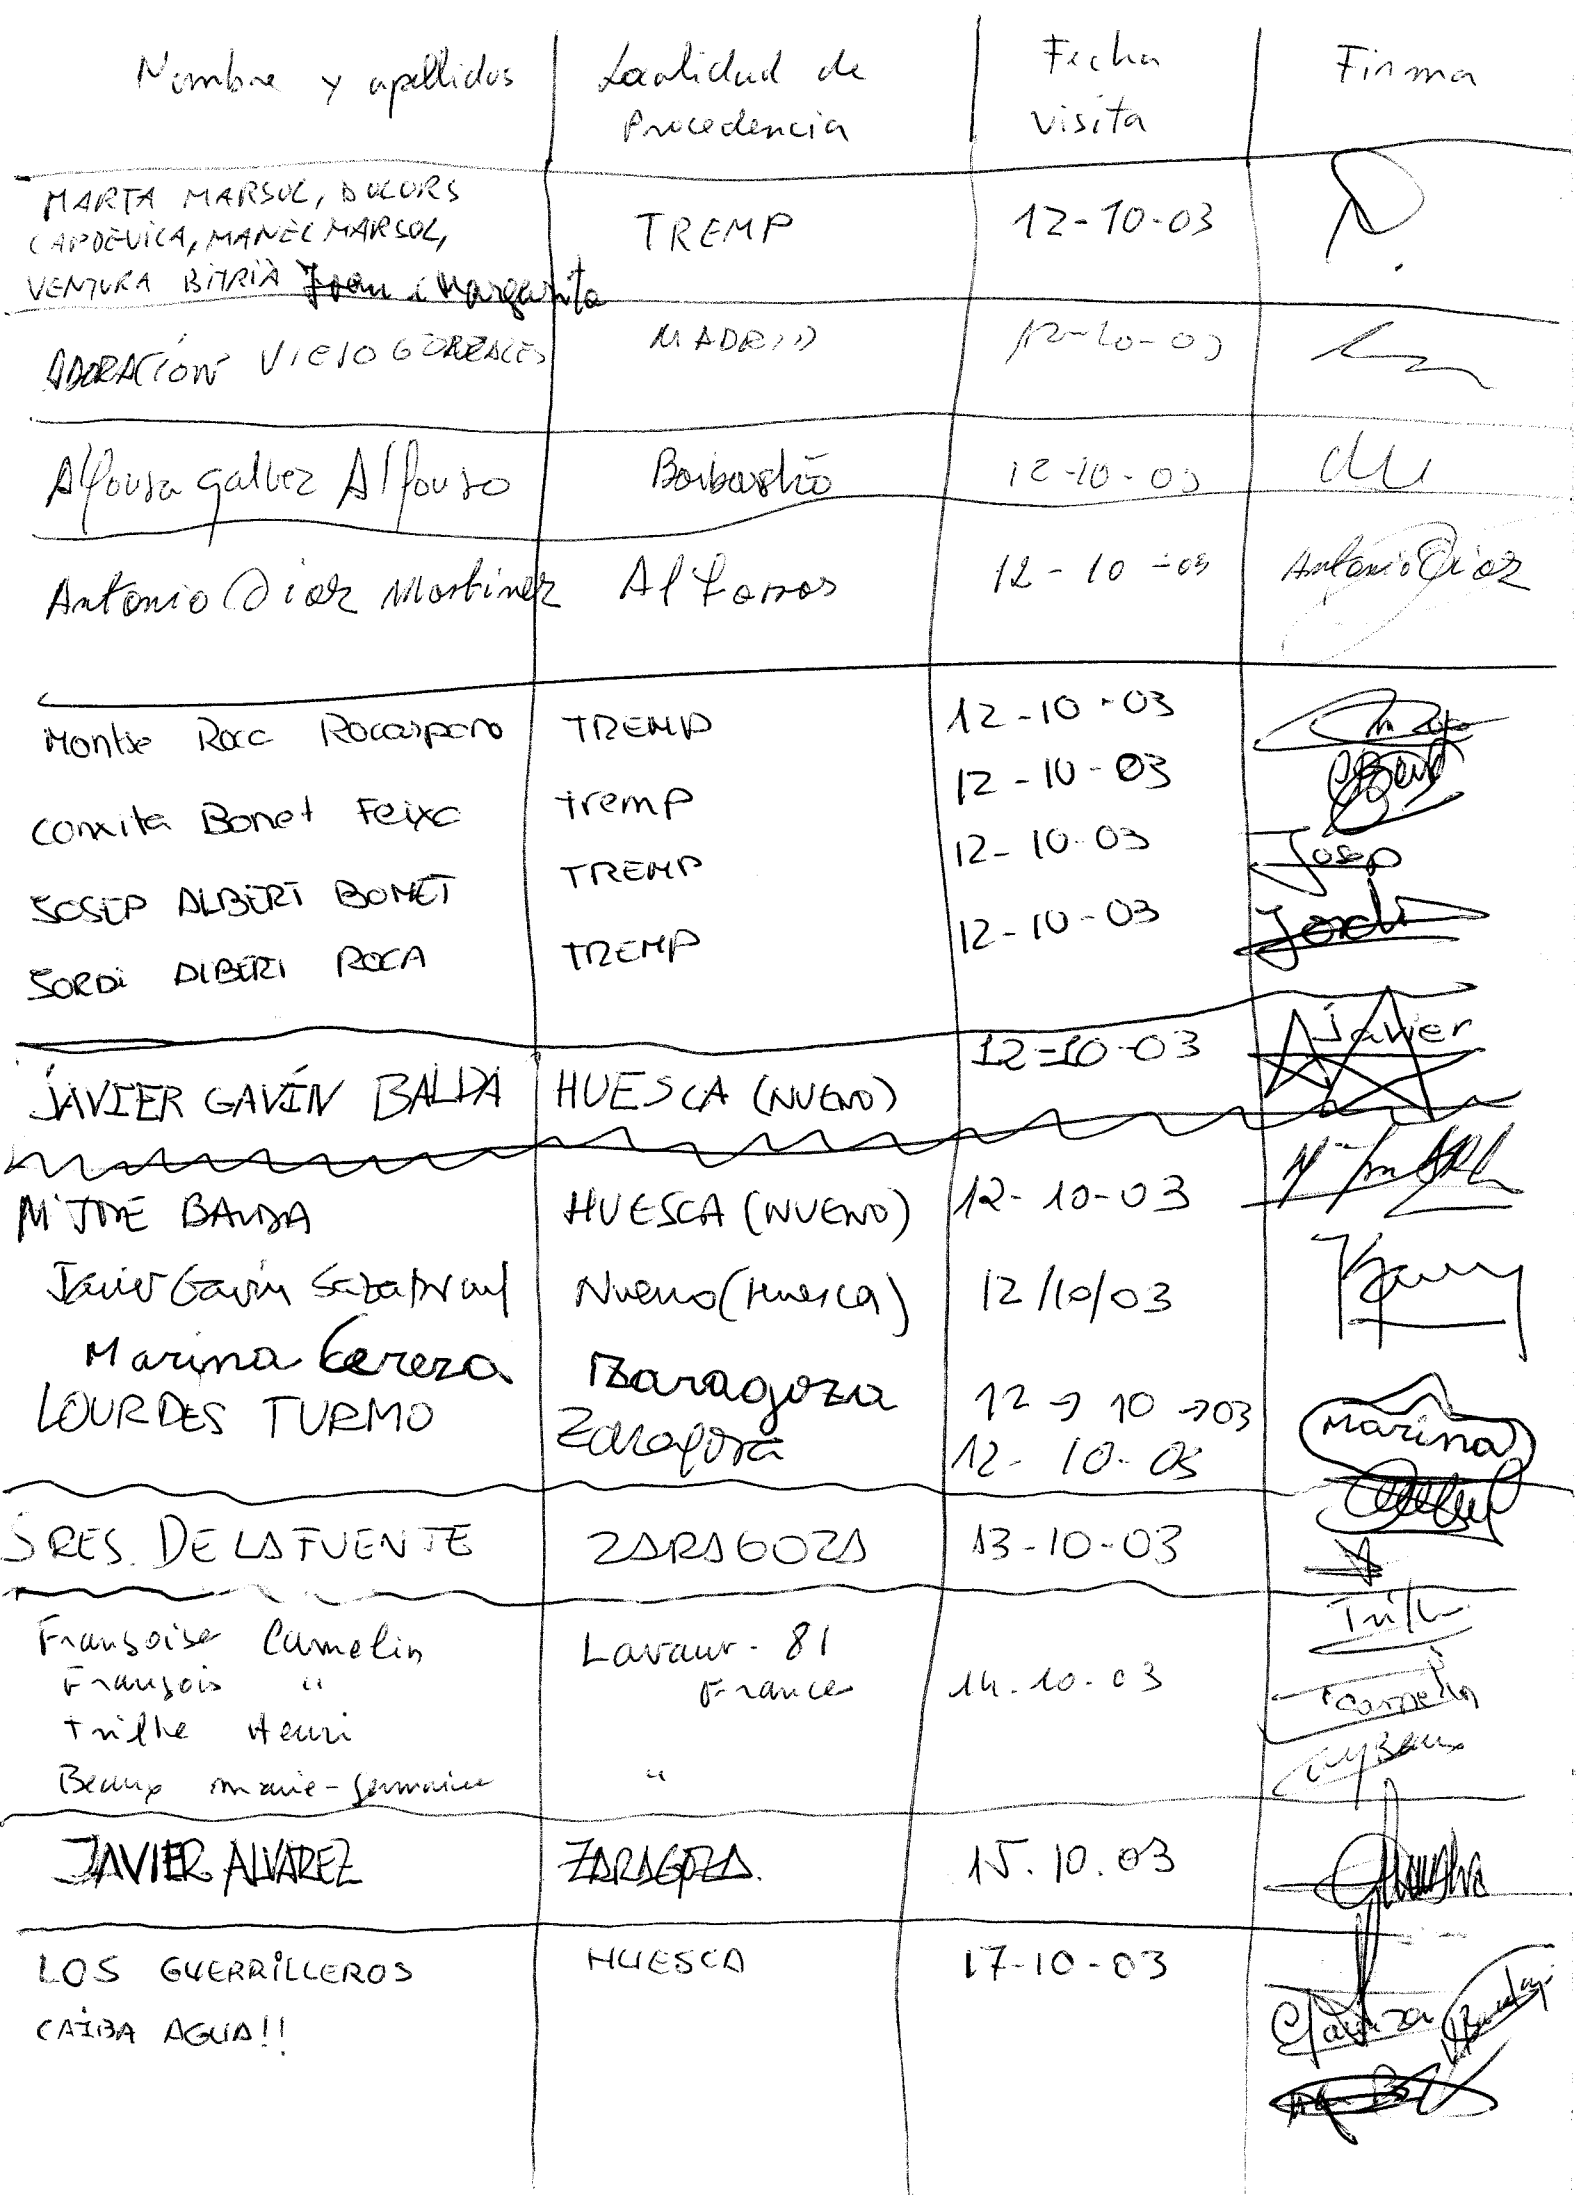 Nombre y apellidos Localidad de Fecha Firma
Procedencia visita
MARTA MARSOL, DOLORS
CAPDEVILA, MANEL MARSOL, TREMP 12-10-03
VENTURA BITRIÀ Joan i Margarita
ADORACIÓN VIEJO GONZALES MADRID 12-10-03
Alfonsa Galvez Alfonso Barbastro 12-10-03
Antonio Diaz Martinez Alfarras 12-10-03 Antonio Diaz
Montse Roca Rocaspana TREMP 12-10-03
Conxita Bonet Feixa Tremp 12-10-03
JOSEP ALBERT BONET TREMP 12-10-03 Josep
JORDI ALBERT ROCA TREMP 12-10-03 Jordi
JAVIER GAVÍN BALDA HUESCA (NUENO) 12-10-03 Javier
Mª JOSE BALDA HUESCA (NUENO) 12-10-03
Javier Gavín Nueno (Huesca) 12/10/03
Marina Cereza Zaragoza 12→10→03 Marina
LOURDES TURMO Zaragoza 12-10-03
SRES. DE LA FUENTE ZARAGOZA 13-10-03
Françoise Camelin Lavaur - 81
François " France 14.10.03 Camelin
Trilhe Henri
Beaux marie-germaine " Beaux
JAVIER ALVAREZ ZARAGOZA. 15.10.03
LOS GUERRILLEROS HUESCA 17-10-03
CAÍBA AGUA!!